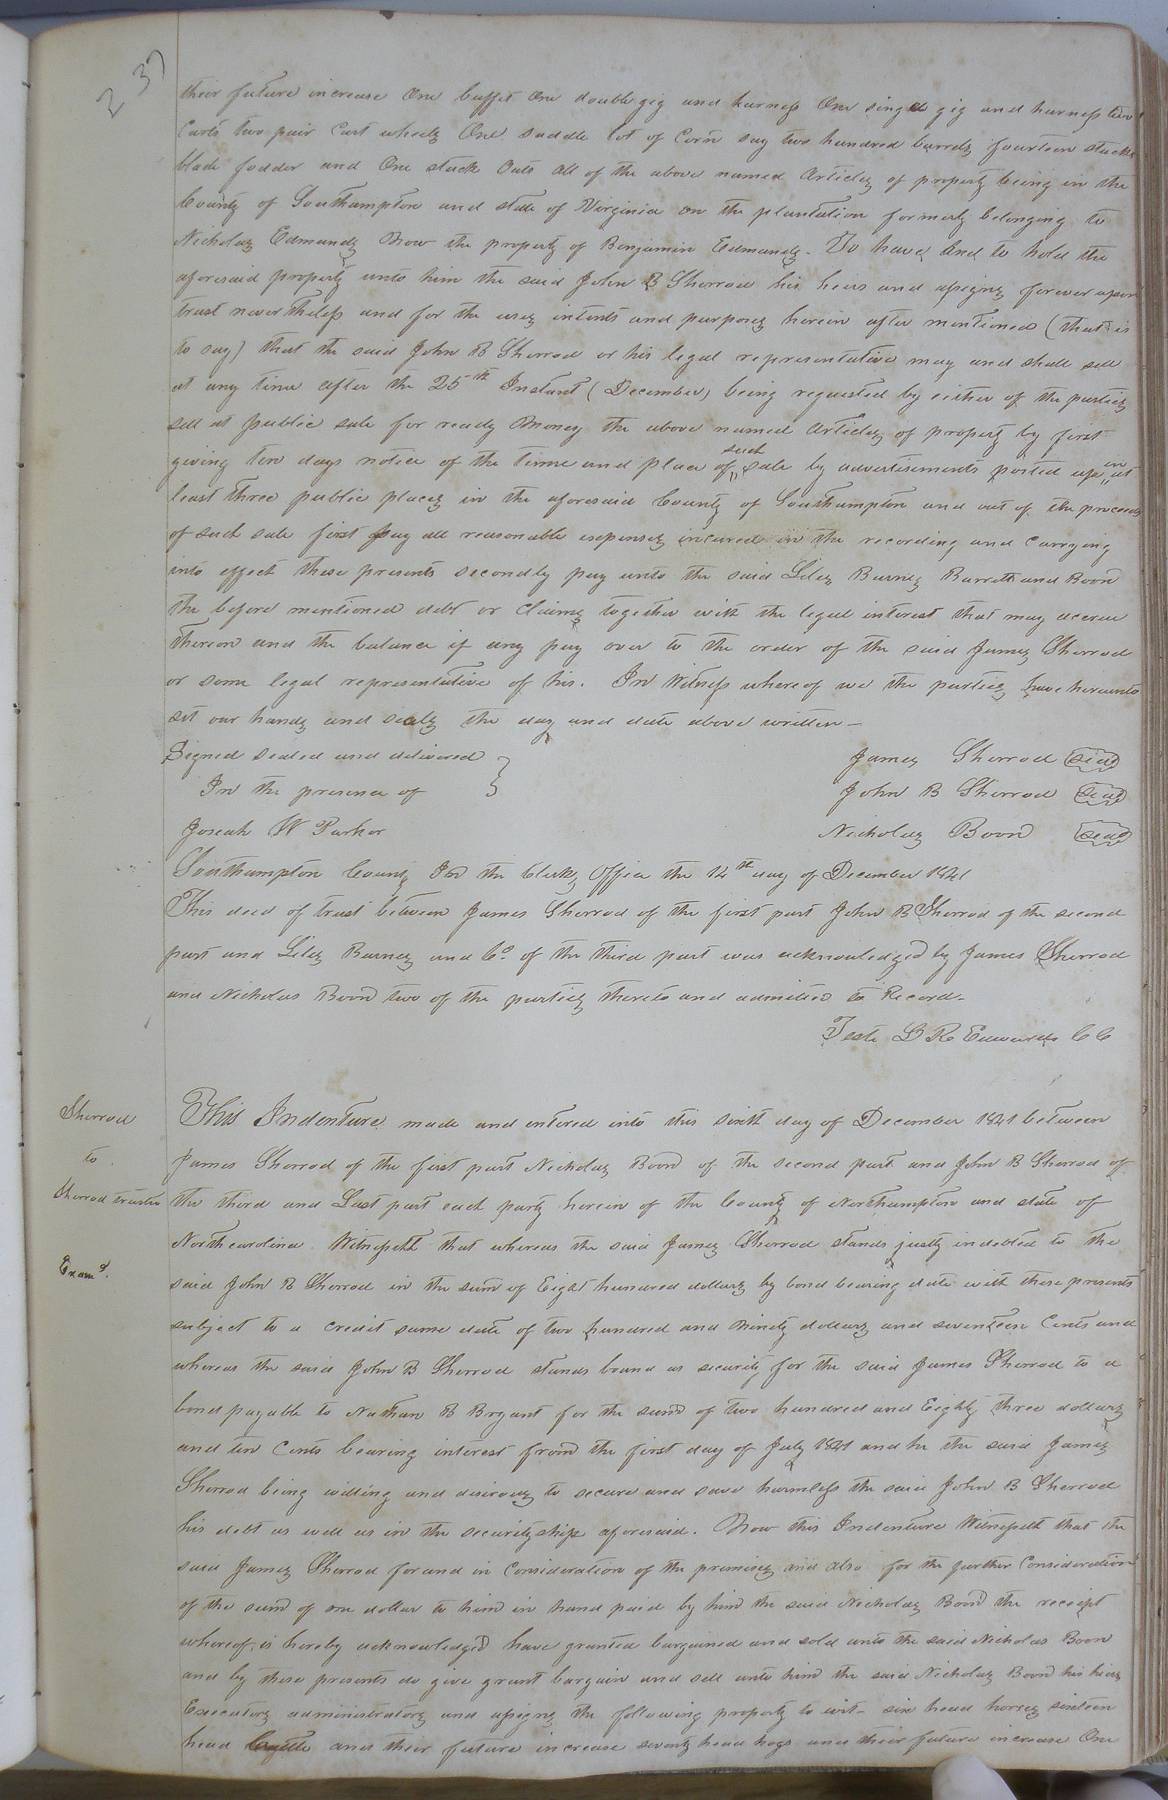 237
their future increase One buffet One double gig and harness One single gig and harness two
Carts two pair Cart wheels One saddle lot of Corn say two hundred barrels fourteen stacks
blade fodder and One stack Oats All of the above named Articles of property being in the
County of Southampton and state of Virginia on the plantation formerly belonging to
Nicholas Edmunds Now the property of Benjamin Edmunds. To have and to hold the
aforesaid property unto him the said John B Sherrod his heirs and assigns forever upon
trust nevertheless and for the uses intents and purposes herein after mentioned (that is
to say) that the said John B Sherrod or his legal representative may and shall sell
at any time after the 25th Instant (December) being requested by either of the parties
sell at public sale for ready Money the above named Articles of property by first
giving ten days notice of the time and place of such sale by advertisements posted up in at
least three public places in the aforesaid County of Southampton and out of the proceeds
of such sale first pay all reasonable expenses incured in the recording and carrying
into effect these presents secondly pay unto the said Liles Barnes Barrett and Boon
the before mentioned debt or Claims together with the legal interest that may accrue
thereon and the balance if any pay over to the order of the said James Sherrod
or some legal representative of his. In Witness whereof we the parties have hereunto
set our hands and seals the day and date above written—
Signed sealed and delivered
In the presence of
Josiah W Parker
James Sherrod seal
John B Sherrod seal
Nicholas Boon seal
Southampton County In the Clerks Office the 14th day of December 1841
This deed of trust between James Sherrod of the first part John B Sherrod of the second
part and Liles Barnes and Co. of the third part was acknowledged by James Sherrod
and Nicholas Boon two of the parties thereto and admitted to Record.
Teste L R Edwards CC
Sherrod
to
Sherrod trustee
Examd.
This Indenture made and entered into this sixth day of December 1841 between
James Sherrod of the first part Nicholas Boon of the second part and John B Sherrod of
the third and Last part each party herein of the County of Northampton and state of
Northcarolina Witnesseth that whereas the said James Sherrod stands justly indebted to the
said John B Sherrod in the sum of Eight hundred dollars by bond bearing date with these presents
subject to a credit same date of two hundred and Ninety dollars and seventeen Cents and
whereas the said John B Sherrod stands bound as security for the said James Sherrod to a
bond payable to Nathan B Bryant for the sum of two hundred and Eighty three dollars
and ten Cents bearing interest from the first day of July 1841 and he the said James
Sherrod being willing and desirous to secure and save harmless the said John B Sherrod
his debt as well as in the securityship aforesaid. Now this Indenture Witnesseth that the
said James Sherrod for and in Consideration of the premises and also for the further Consideration
of the sum of one dollar to him in hand paid by him the said Nicholas Boon the receipt
whereof is hereby acknowledged have granted bargained and sold unto the said Nicholas Boon
and by these presents do give grant bargain and sell unto him the said Nicholas Boon his heirs
Executors administrators and assigns the following property to wit— six head horses sixteen
head Cattle and their future increase seventy head hogs and their future increase One